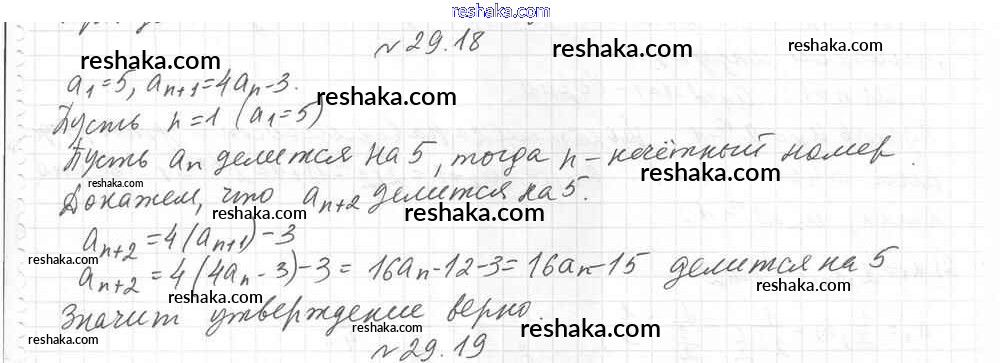 reshaka.com
№29.18
reshaka.com
reshaka.com
reshaka.com
a₁=5, aₙ₊₁=4aₙ-3.
reshaka.com
Пусть n=1 (a₁=5)
Пусть aₙ делится на 5, тогда n - нечётный номер.
reshaka.com
reshaka.com
Докажем, что aₙ₊₂ делится на 5.
reshaka.com
reshaka.com
aₙ₊₂=4(aₙ₊₁)-3
reshaka.com
aₙ₊₂=4(4aₙ-3)-3=16aₙ-12-3=16aₙ-15 делится на 5
reshaka.com
reshaka.com
reshaka.com
Значит утверждение верно.
reshaka.com
reshaka.com
reshaka.com
№29.19
reshaka.com